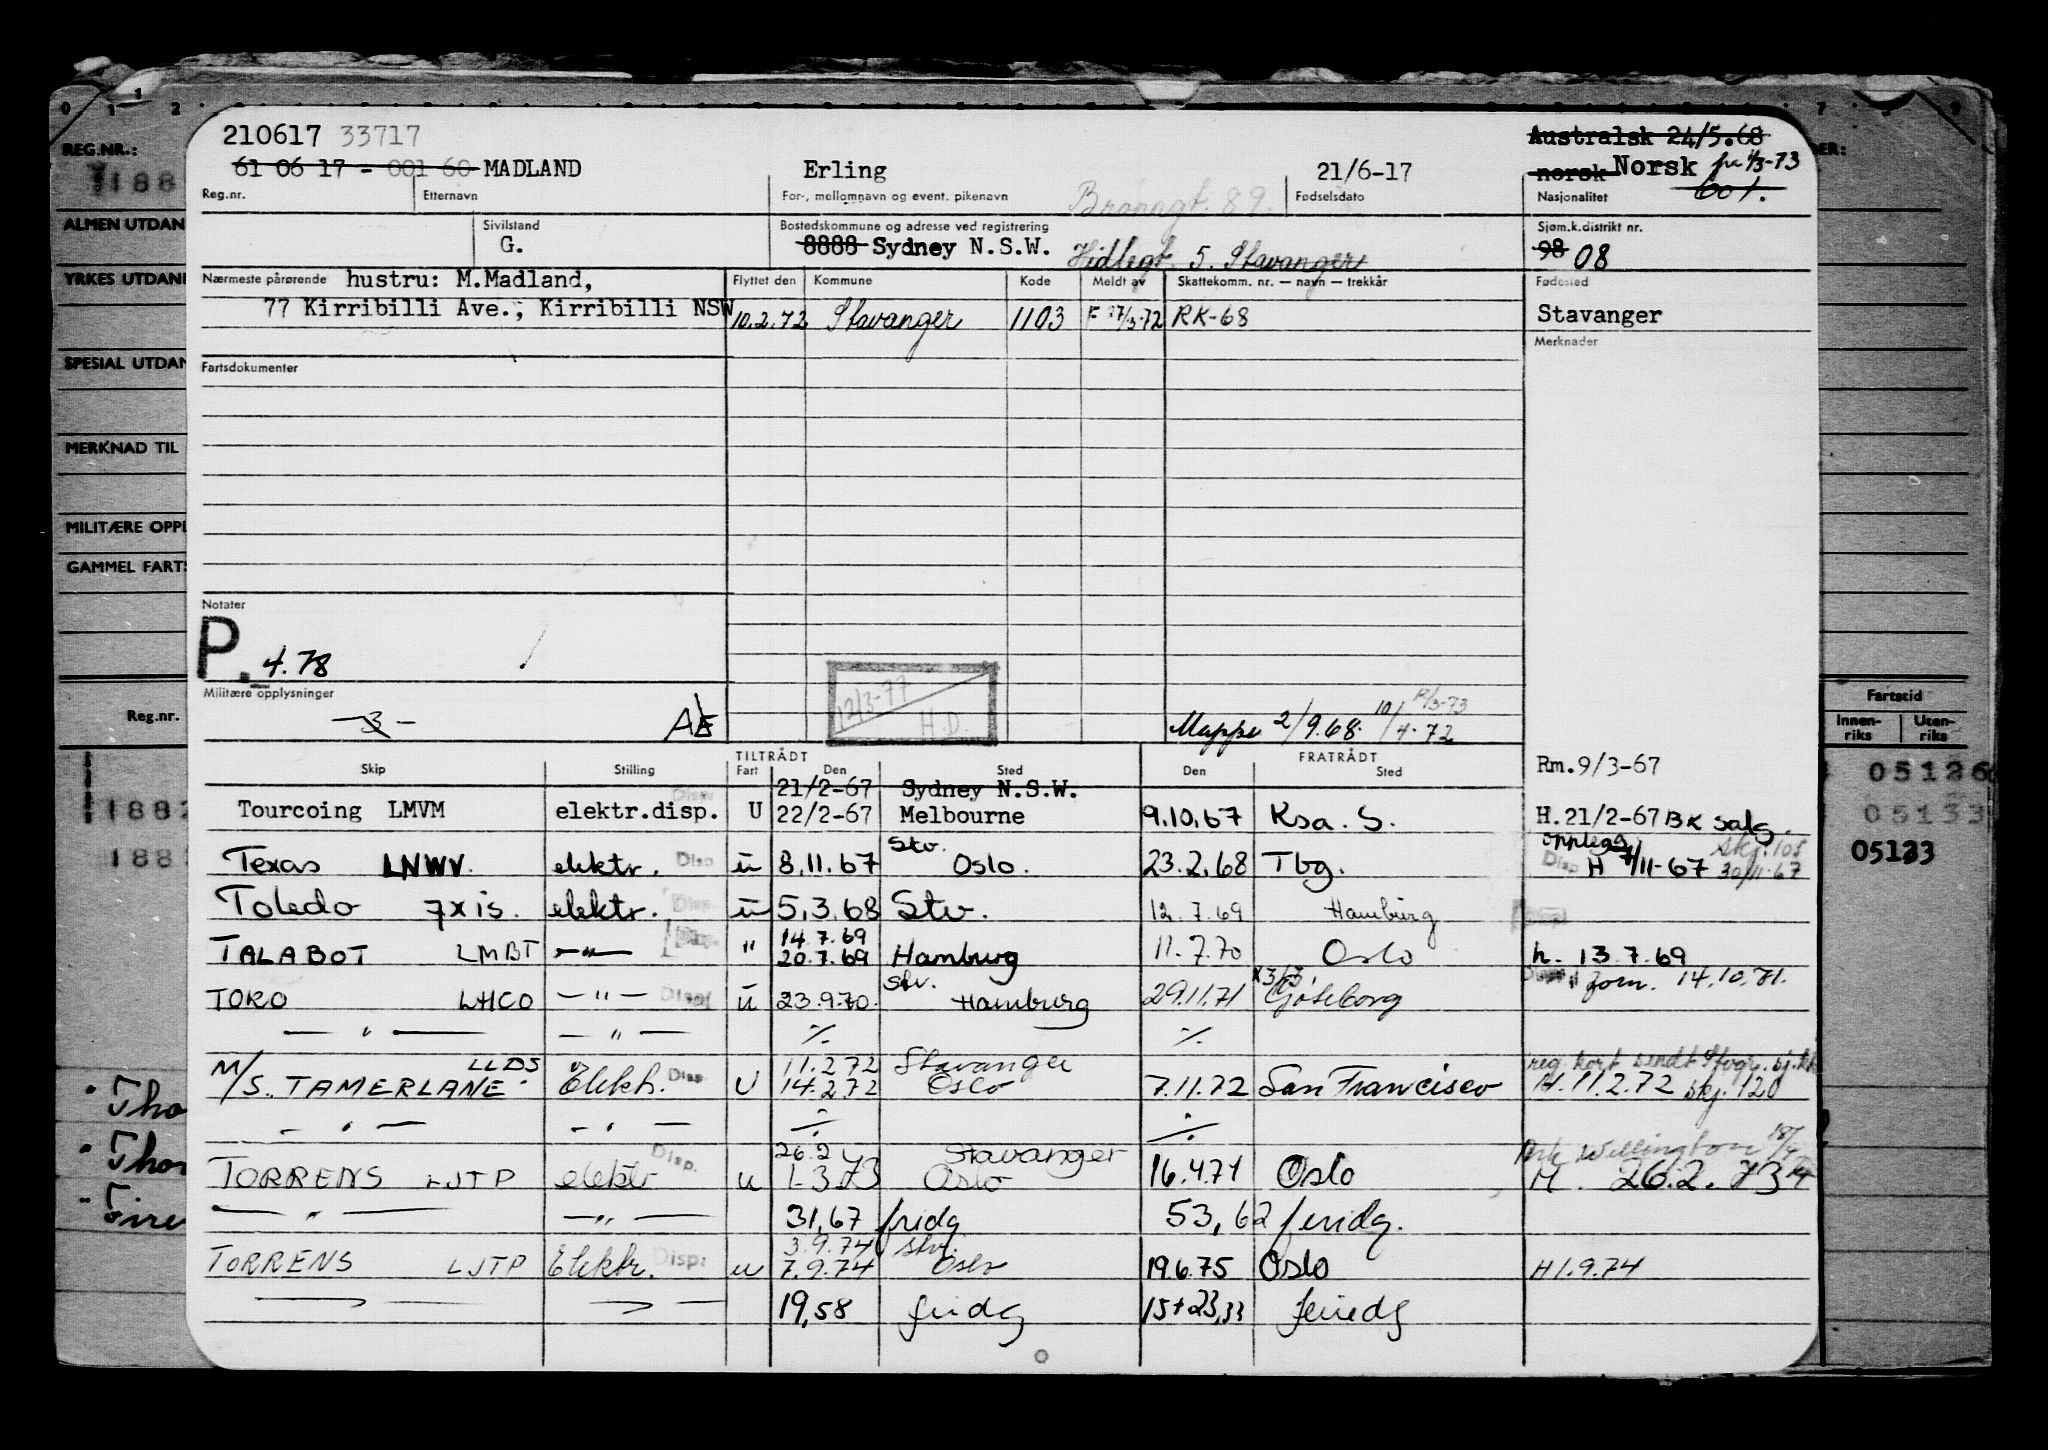 210617 33717
Australsk 24/5.68
61 06 17 - 001 60 MADLAND Erling 21/6-17 norsk Norsk fra 1/3-73
601.
Reg.nr. Etternavn For-, mellomnavn og event. pikenavn Fødselsdato Nasjonalitet
Sivilstand Bostedskommune og adresse ved registrering Sjøm.k.distrikt nr.
G. 8888 Sydney N.S.W. Hidlegt. 5. Stavanger 98 08
Nærmeste pårørende hustru: M.Madland, Flyttet den Kommune Kode Meldt av Skattekomm. nr. — navn — trekkår Fødested
77 Kirribilli Ave., Kirribilli NSW 10.2.72 Stavanger 1103 F 27/3-72 RK-68 Stavanger
Merknader
Fartsdokumenter
Notater
P. 4.78
Militære opplysninger
-3- AE 12/3-77 H.D. Mappe 2/9.68. 10/4-72 12/3-73
TILTRÅDT FRATRÅDT
Skip Stilling Fart Den Sted Den Sted Rm.9/3-67
21/2-67 Sydney N.S.W.
Tourcoing LMVM elektr.disp. U 22/2-67 Melbourne 9.10.67 Ksa. S. H.21/2-67 BK salg.
Stv.
Texas LNWV. elektr. Disp ü 8.11.67 Oslo. 23.2.68 Tbg. Disp H 7/11-67 skj.108 30/11-67
Toledo 7xis. elektr. Disp. ü 5.3.68 Stv. 12.7.69 Hamburg
14.7.69
TALABOT LMBT —"— " 20.7.69 Hamburg 11.7.70 Oslo h. 13.7.69
Stv. x3/3,
TORO LHCO —"— Disp ü 23.9.70. Hamburg 29.11.71 Göteborg 14.10.71.
— " — — " — ·/. ·/.
LLDS 11.2.72 Stavanger reg. kort sendt
M/S. TAMERLANE. Elektr. Disp. U 14.2.72 Oslo 7.11.72 San Francisco H.11.2.72 skj.120
— " — — " — ·/. ·/.
26.2 Stavanger
TORRENS LJTP elektr Disp. u 1-3.73 Oslo 16.4.74 Oslo M. 26.2.73
— " — — " — 31,67 fridg 53,62 feridg.
3.9.74 Stv.
TORRENS LJTP Elektr. Disp: u 7.9.74 Oslo 19.6.75 Oslo H1.9.74
19,58 fridg 15+23,33 feriedg
REG.NR.:
ALMEN UTDAN
YRKES UTDANN
SPESIAL UTDAN
MERKNAD TIL
MILITÆRE OPPL
GAMMEL FARTS
Reg.nr.
188
1882
188
Tho
Thor
Fartstid
Innen-riks Uten-riks
05126
05133
05133